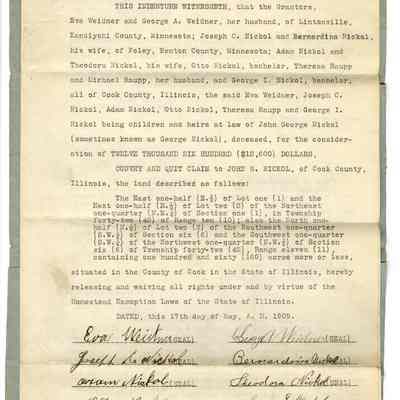 THIS INDENTURE WITNESSETH, that the Grantors,
Eva Weidner and George A. Weidner, her husband, of Lintonville,
Kandiyohi County, Minnesota; Joseph C. Nickol and Bernardina Nickol,
his wife, of Foley, Benton County, Minnesota; Adam Nickol and
Theodora Nickol, his wife, Otto Nickol, bachelor, Theresa Raupp
and Michael Raupp, her husband, and George I. Nickol, bachelor,
all of Cook County, Illinois, the said Eva Weidner, Joseph C.
Nickol, Adam Nickol, Otto Nickol, Theresa Raupp and George I.
Nickol being children and heirs at law of John George Nickol
(sometimes known as George Nickol), deceased, for the consider-
ation of TWELVE THOUSAND SIX HUNDRED ($12,600) DOLLARS,
CONVEY AND QUIT CLAIM to JOHN S. NICKOL, of Cook County,
Illinois, the land described as follows:
The East one-half (E.½) of Lot one (1) and the
East one-half (E.½) of Lot two (2) of the Northwest
one-quarter (N.W.¼) of Section one (1), in Township
forty-two (42) of Range ten (10); also the North one-
half (N.½) of Lot two (2) of the Southwest one-quarter
(S.W.¼) of section six (6) and the Southwest one-quarter
(S.W.¼) of the Northwest one-quarter (N.W.¼) of Section
six (6) of Township forty-two (42), Range eleven (11),
containing one hundred and sixty (160) acres more or less,
situated in the County of Cook in the State of Illinois, hereby
releasing and waiving all rights under and by virtue of the
Homestead Exemption Laws of the State of Illinois.
DATED, this 17th day of May, A. D. 1905.
Eva Weidner (SEAL) (SEAL)
Joseph Nickol (SEAL) Bernardina Nickol (SEAL)
Adam Nickol (SEAL) Theodora Nickol (SEAL)